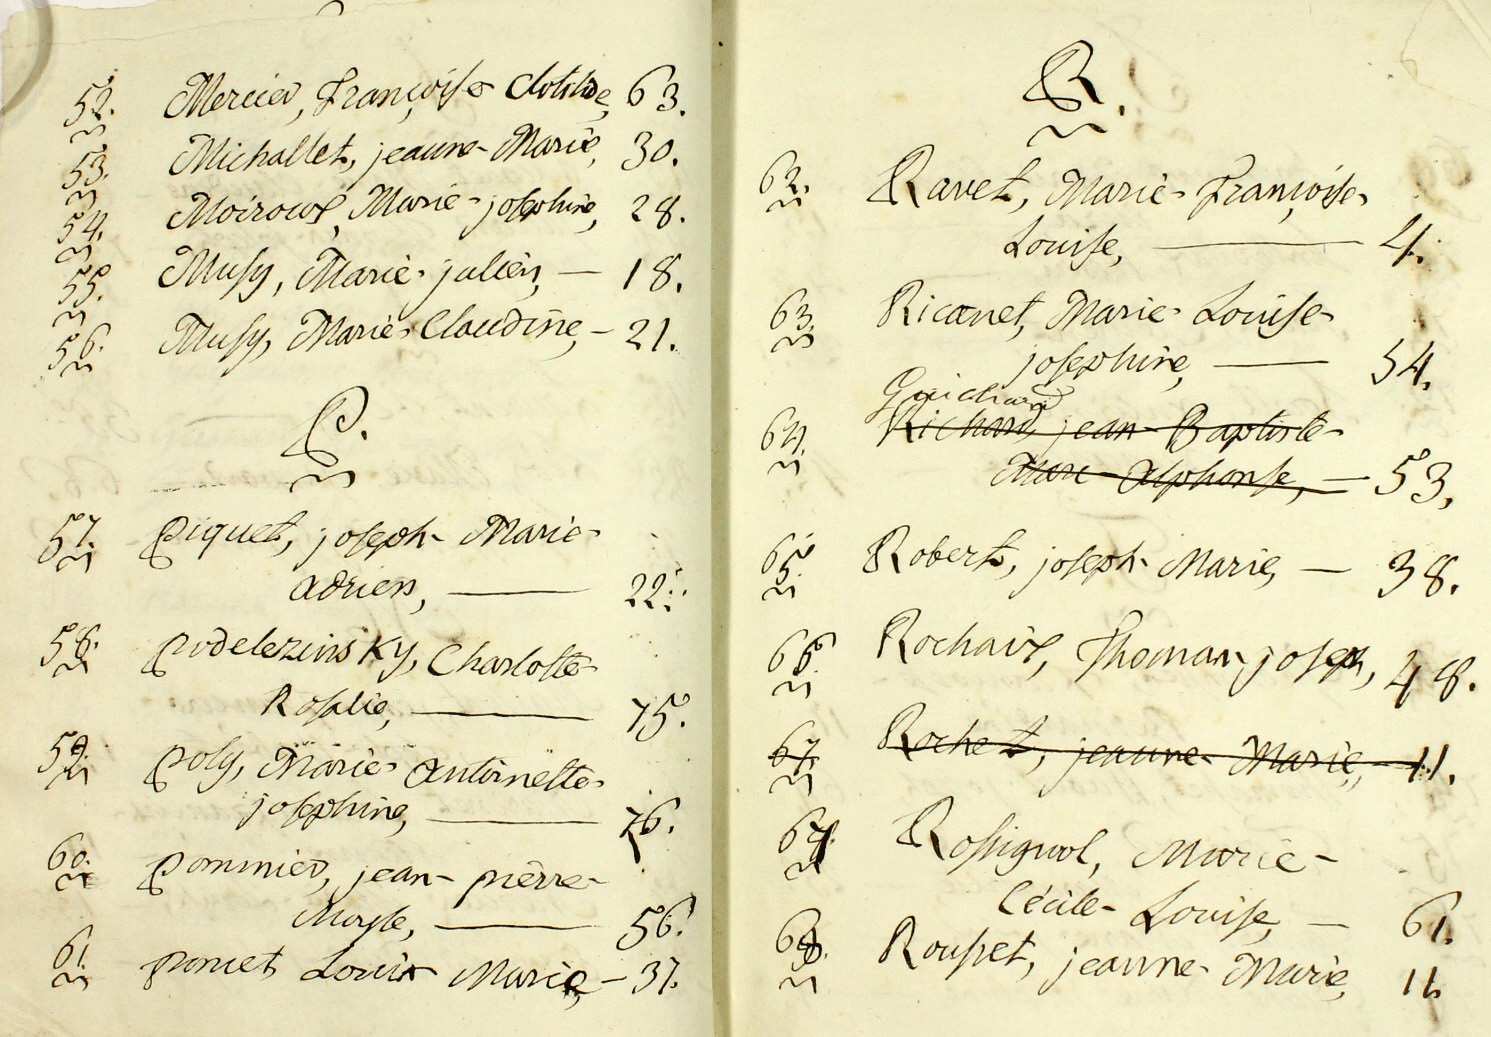 52. Mercier, Françoise Clotilde, 63.
53. Michallet, jeanne-Marie, 30.
54. Moiroux, Marie-josephine, 28.
55. Musy, Marie-julien, — 18.
56. Musy, Marie-Claudine, — 21.
P.
57. Piquet, joseph-Marie-
adrien, — 22.
58. Podelezinsky, Charlotte-
Rosalie, — 75.
59. Poly, Marie-Antoinette-
josephine, — 76.
60. Pommier, jean-pierre-
Moyse, — 56.
61. Poncet Louis Marie, — 37.
R.
62. Ravet, Marie-Françoise-
Louise, — 4.
63. Ricanet, Marie-Louise-
josephine, — 54.
Guichard
64. Richard, jean-Baptiste-
Marc-Alphonse, — 53.
65. Robert, joseph-Marie, — 38.
66. Rochaix, Thomas-joseph, 48.
67. Rochet, jeanne-Marie, — 11.
67. Rossignol, Marie-
Cécile-Louise, — 61.
68. Rousset, jeanne-Marie, 11.